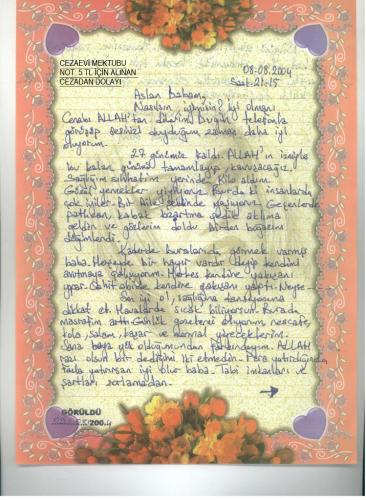 CEZAEVİ MEKTUBU
NOT: 5 TL İÇİN ALINAN
CEZADAN DOLAYI
08-08.2004
Saat: 21-15
Aslan Babam,
Nasılsın iyimisin? İyi olmanı
Cenabı ALLAH'tan dilerim. Bugün telefonla
görüşüp sesinizi duyduğum zaman daha iyi
oluyorum.
27 günümüz kaldı. ALLAH'ın izniyle
bu kalan günümü tamamlayıp kavuşacağız.
Sağlığım sıhhatim yerinde çok şükür.
Güzel yemekler yiyoruz. Burda ki insanlarda
çok iyiler. Bir Aile şeklinde yaşıyoruz. Geçenlerde
patlıcan kabak kızartma yedik aklıma
geldin ve gözlerim doldu birden boğazım
düğümlendi.
Kaderde buralarıda görmek varmış
baba. Herşeyde bir hayır vardır deyip kendimi
avutmaya çalışıyorum. Herkes kendine yakışanı
yapar. kendine yakışanı yaptı. Neyse...
Sen iyi ol, sağlığına tansiyonuna
dikkat et. Havalarda sıcak biliyorsun. Burada
masrafım arttı. Günlük gazetemi alıyorum, nescafe,
kola, salam, kaşar ve normal yiyeceklerim.
Sana baya yük olduğumun farkındayım. ALLAH
razı olsun bir dediğimi iki etmedin. Para yatırdığında
fazla yatırırsan iyi olur baba. Tabi imkanları ve
şartları zorlamadan.
GÖRÜLDÜ
200.4